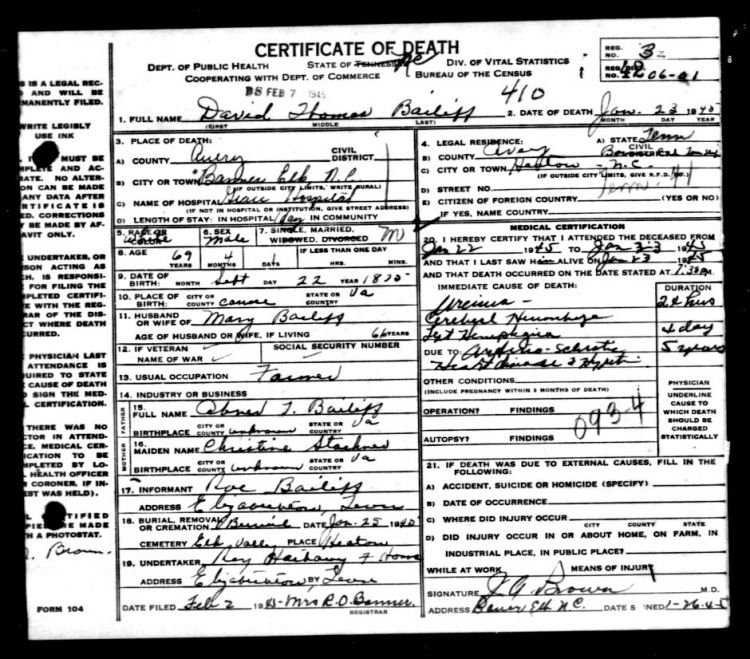 CERTIFICATE OF DEATH
DEPT. OF PUBLIC HEALTH STATE OF TENNESSEE NC DIV. OF VITAL STATISTICS
COOPERATING WITH DEPT. OF COMMERCE BUREAU OF THE CENSUS
REG. NO. 32
REG. DIS. NO. 1206-01
FEB 7 1945
410
1. FULL NAME David Thomas Bailiff 2. DATE OF DEATH Jan. 23 1945
(FIRST) MIDDLE LAST) MONTH DAY YEAR
3. PLACE OF DEATH: CIVIL DISTRICT
A) COUNTY Avery
B) CITY OR TOWN Banner Elk N.C.
(IF OUTSIDE CITY LIMITS, WRITE RURAL)
C) NAME OF HOSPITAL Grace Hospital
(IF NOT IN HOSPITAL OR INSTITUTION, GIVE STREET ADDRESS)
D) LENGTH OF STAY: IN HOSPITAL 1 day IN COMMUNITY
4. LEGAL RESIDENCE: A) STATE Tenn
B) COUNTY Avery CIVIL
C) CITY OR TOWN N.C.
(IF OUTSIDE CITY LIMITS, GIVE R.F.D. NO.)
D) STREET NO Tenn
E) CITIZEN OF FOREIGN COUNTRY (YES OR NO)
IF YES, NAME COUNTRY
5. RACE OR COLOR White 6. SEX Male 7. SINGLE, MARRIED, WIDOWED, DIVORCED M
8. AGE 69 YEARS 4 MONTHS 1 DAYS IF LESS THAN ONE DAY HRS. MINS.
9. DATE OF BIRTH: MONTH Sept DAY 22 YEAR 1875
10. PLACE OF BIRTH: CITY OR COUNTY STATE OR COUNTRY Va
11. HUSBAND OR WIFE OF Mary Bailiff
AGE OF HUSBAND OR WIFE, IF LIVING 66 YEARS
12. IF VETERAN NAME OF WAR SOCIAL SECURITY NUMBER
13. USUAL OCCUPATION Farmer
14. INDUSTRY OR BUSINESS
FATHER 15. FULL NAME Abner T. Bailiff
BIRTHPLACE CITY OR COUNTY unknown STATE OR COUNTRY Va
MOTHER 16. MAIDEN NAME Christine
BIRTHPLACE CITY OR COUNTY unknown STATE OR COUNTRY Va
17. INFORMANT Roe Bailiff
ADDRESS Elizabethton, Tenn
18. BURIAL, REMOVAL OR CREMATION Burial DATE Jan. 25 1945
CEMETERY Elk Valley PLACE Heaton
19. UNDERTAKER Roy Hathaway F Home
ADDRESS Elizabethton BY Tenn
DATE FILED Feb 2 1945 - Mrs R.O. Banner
REGISTRAR
MEDICAL CERTIFICATION
20. I HEREBY CERTIFY THAT I ATTENDED THE DECEASED FROM
Jan 22 1945 TO Jan 23 1945
AND THAT I LAST SAW HIM ALIVE ON Jan 23 1945
AND THAT DEATH OCCURRED ON THE DATE STATED AT 7:30 P.M.
IMMEDIATE CAUSE OF DEATH: DURATION
Uremia - 24 hrs
Cerebral Hemorrhage
Left Hemiplegia 4 day
DUE TO: Arterio-Sclerotic 5 years
Heart disease &
OTHER CONDITIONS
(INCLUDE PREGNANCY WITHIN 3 MONTHS OF DEATH)
OPERATION? FINDINGS
093-4
AUTOPSY? FINDINGS
PHYSICIAN UNDERLINE CAUSE TO WHICH DEATH SHOULD BE CHARGED STATISTICALLY
21. IF DEATH WAS DUE TO EXTERNAL CAUSES, FILL IN THE FOLLOWING:
A) ACCIDENT, SUICIDE OR HOMICIDE (SPECIFY)
B) DATE OF OCCURRENCE
C) WHERE DID INJURY OCCUR
CITY COUNTY STATE
D) DID INJURY OCCUR IN OR ABOUT HOME, ON FARM, IN
INDUSTRIAL PLACE, IN PUBLIC PLACE?
WHILE AT WORK MEANS OF INJURY
SIGNATURE J.G. Brown M.D.
ADDRESS Banner Elk N.C. DATE SIGNED 1-26-45
S IS A LEGAL REC-
D AND WILL BE
MANENTLY FILED.
WRITE LEGIBLY
USE INK
MUST BE
PLETE AND AC-
RATE. NO ALTER-
ION CAN BE MADE
ANY DATA AFTER
CERTIFICATE IS
ED. CORRECTIONS
BE MADE BY AF-
AVIT ONLY.
UNDERTAKER, OR
RSON ACTING AS
CH. IS RESPONSI-
FOR FILING THE
PLETED CERTIFI-
TE WITH THE REG-
RAR OF THE DIS-
CT WHERE DEATH
CURRED.
PHYSICIAN LAST
ATTENDANCE IS
QUIRED TO STATE
CAUSE OF DEATH
D SIGN THE MED-
L CERTIFICATION.
THERE WAS NO
CTOR IN ATTEND-
E, MEDICAL CER-
ICATION TO BE
MPLETED BY LO-
HEALTH OFFICER
R CORONER, IF IN-
EST WAS HELD).
CERTIFIED
MADE
H A PHOTOSTAT.
Brown
FORM 104